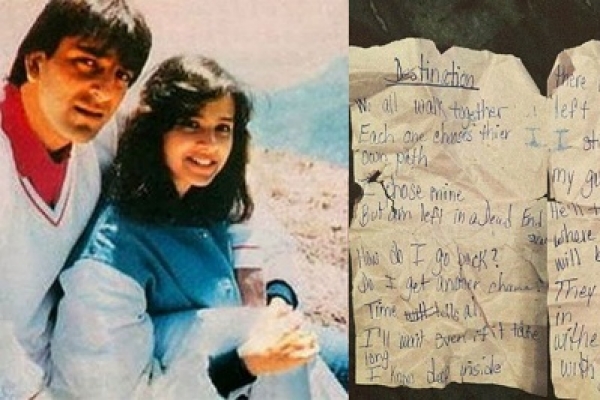 Destination
We all walk together
Each one choses thier
own path
I chose mine
But am left in a dead End
How do I go back?
Do I get another
Time will tells all
I'll wait even if it take
long
I know deep inside
there
left
I
my
He'll
where
will
They
in
withe
with